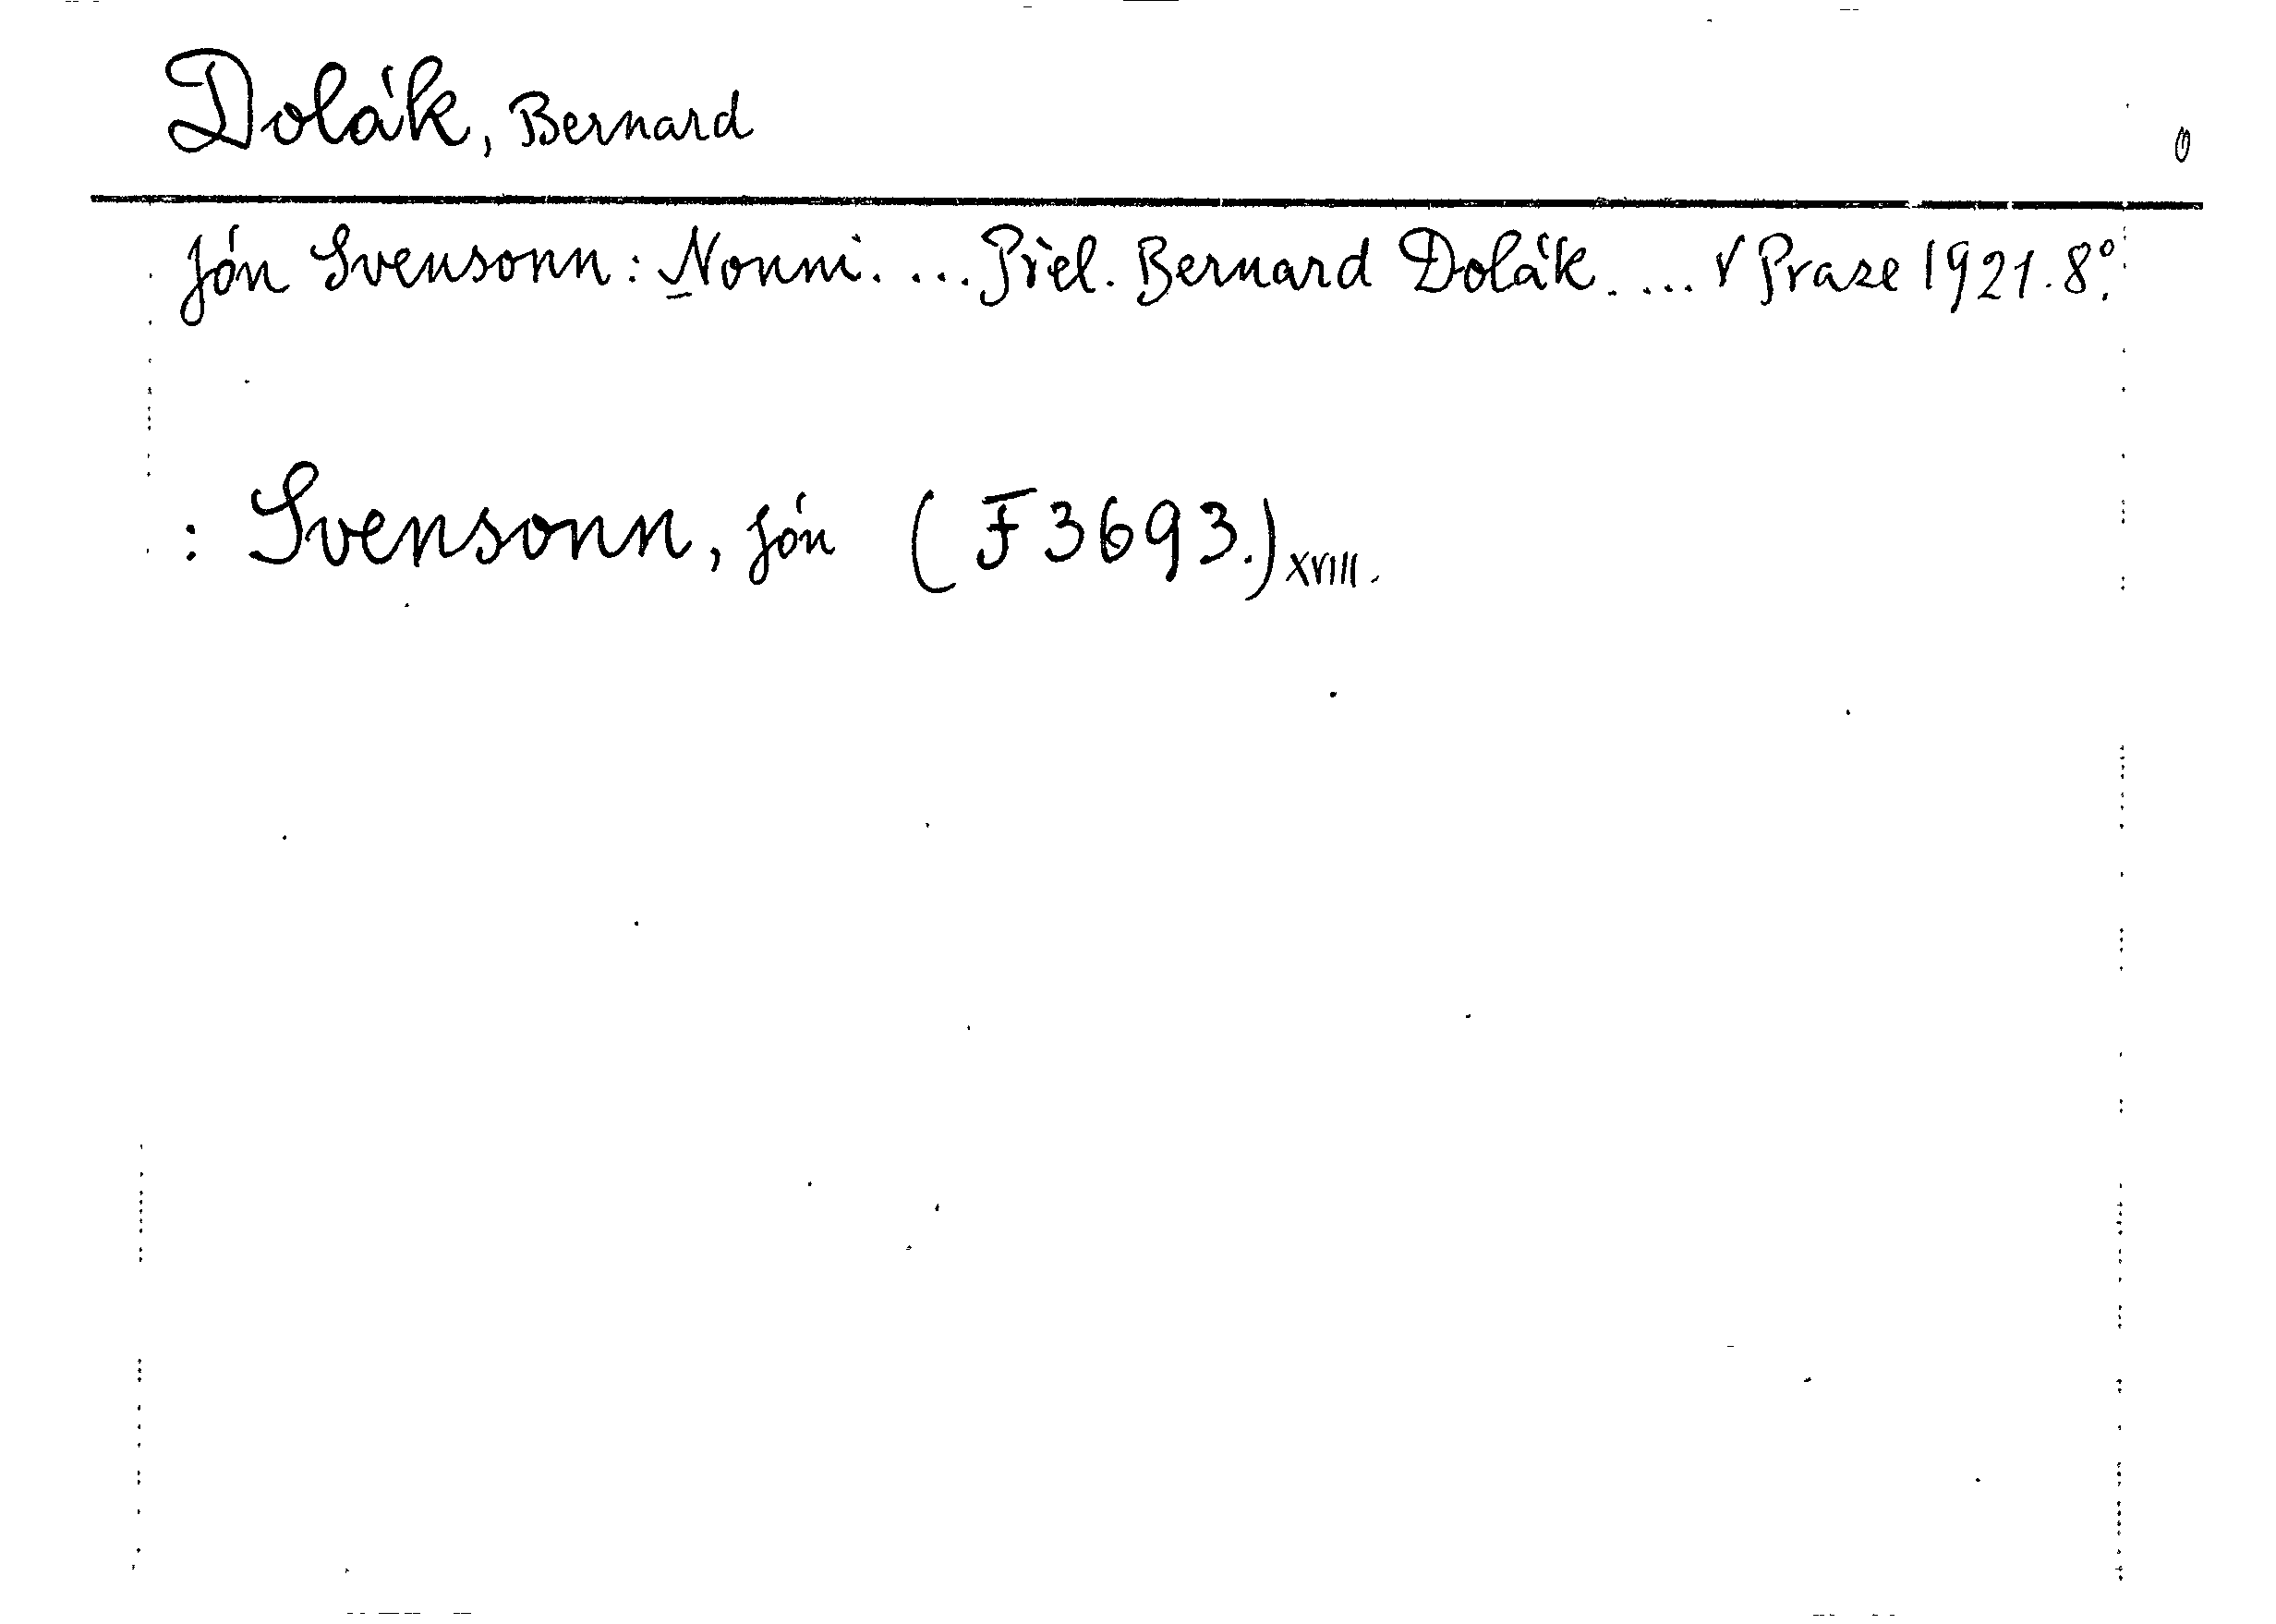 Dolák, Bernard
Jón Svensonn: Nonni. ... Přel. Bernard Dolák. ... V Praze 1921. 8°.
: Svensonn, Jón (F 3693.) XVIII.